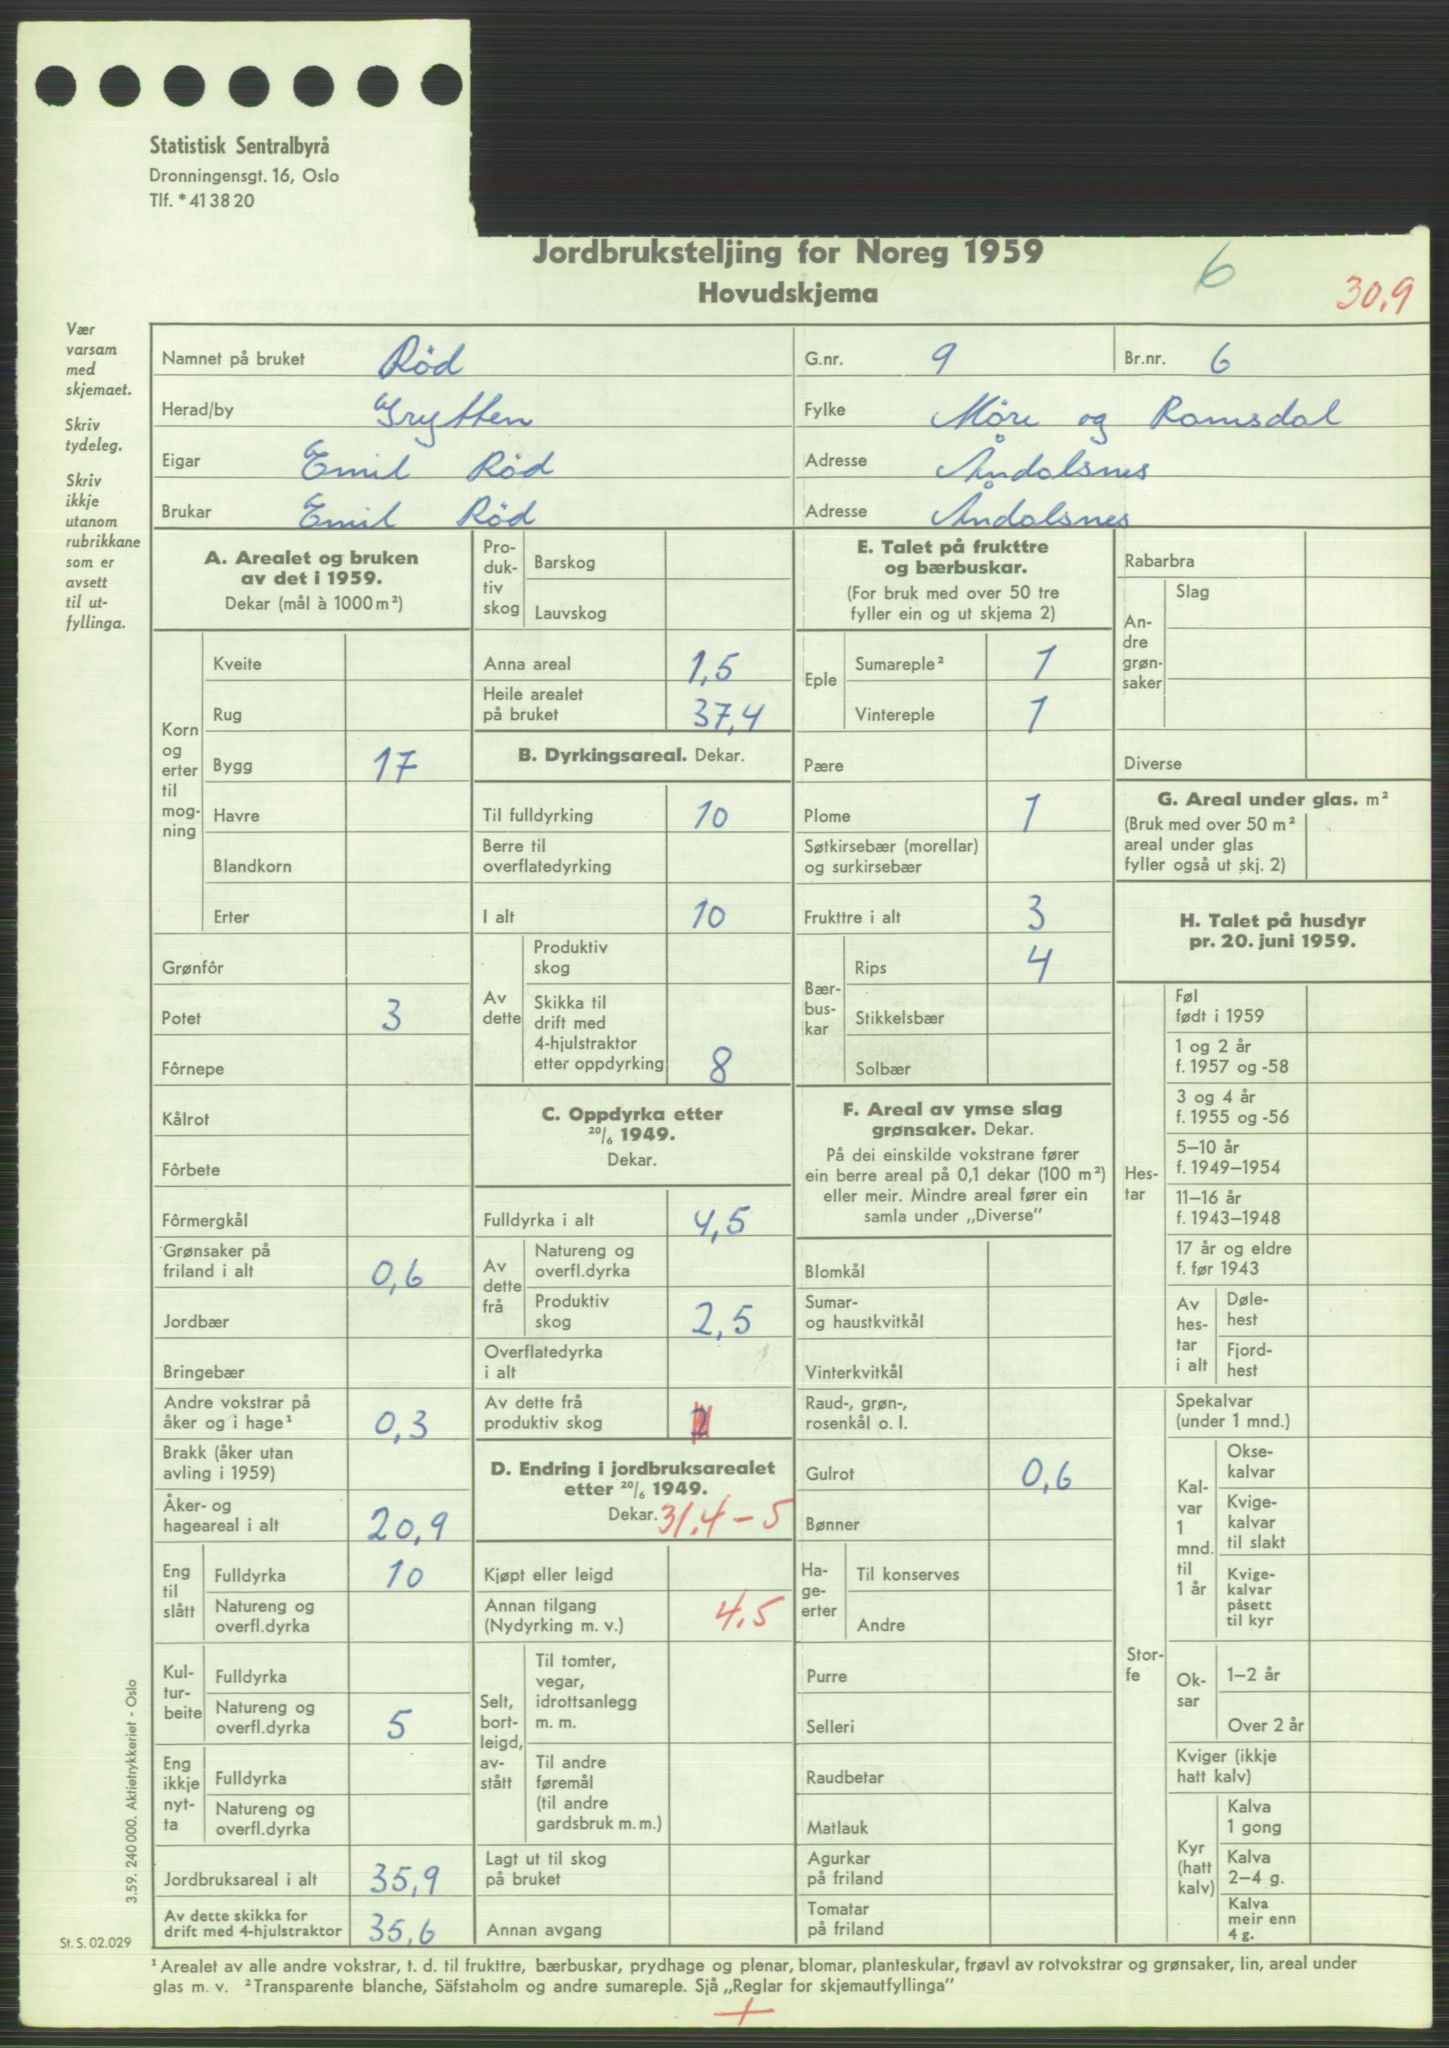 Statistisk Sentralbyrå
Dronningensgt. 16, Oslo
Tlf. * 41 38 20
Jordbruksteljing for Noreg 1959
Hovudskjema
6
30,9
Vær
varsam
med
skjemaet.
Skriv
tydeleg.
Skriv
ikkje
utanom
rubrikkane
som er
avsett
til ut-
fyllinga.
Namnet på bruket Röd
G.nr. 9
Br.nr. 6
Herad/by Grytten
Fylke Möre og Romsdal
Eigar Emil Röd
Adresse Åndalsnes
Brukar Emil Röd
Adresse Åndalsnes
A. Arealet og bruken
av det i 1959.
Dekar (mål à 1000 m²)
Korn
og
erter
til
mog-
ning
Kveite
Rug
Bygg 17
Havre
Blandkorn
Erter
Grønfôr
Potet 3
Fôrnepe
Kålrot
Fôrbete
Fôrmergkål
Grønsaker på
friland i alt 0,6
Jordbær
Bringebær
Andre vokstrar på
åker og i hage¹ 0,3
Brakk (åker utan
avling i 1959)
Åker- og
hageareal i alt 20,9
Eng
til
slått
Fulldyrka 10
Natureng og
overfl.dyrka
Kul-
tur-
beite
Fulldyrka
Natureng og
overfl.dyrka 5
Eng
ikkje
nyt-
ta
Fulldyrka
Natureng og
overfl.dyrka
Jordbruksareal i alt 35,9
Av dette skikka for
drift med 4-hjulstraktor 35,6
Pro-
duk-
tiv
skog
Barskog
Lauvskog
Anna areal 1,5
Heile arealet
på bruket 37,4
B. Dyrkingsareal. Dekar.
Til fulldyrking 10
Berre til
overflatedyrking
I alt 10
Av
dette
Produktiv
skog
Skikka til
drift med
4-hjulstraktor
etter oppdyrking 8
C. Oppdyrka etter
20/6 1949.
Dekar.
Fulldyrka i alt 4,5
Av
dette
frå
Natureng og
overfl.dyrka
Produktiv
skog 2,5
Overflatedyrka
i alt
Av dette frå
produktiv skog 2
D. Endring i jordbruksarealet
etter 20/6 1949.
Dekar. 31,4 – 5
Kjøpt eller leigd
Annan tilgang
(Nydyrking m. v.) 4,5
Selt,
bort-
leigd,
av-
stått
Til tomter,
vegar,
idrottsanlegg
m. m.
Til andre
føremål
(til andre
gardsbruk m. m.)
Lagt ut til skog
på bruket
Annan avgang
E. Talet på frukttre
og bærbuskar.
(For bruk med over 50 tre
fyller ein og ut skjema 2)
Eple
Sumareple² 1
Vintereple 1
Pære
Plome 1
Søtkirsebær (morellar)
og surkirsebær
Frukttre i alt 3
Bær-
bus-
kar
Rips 4
Stikkelsbær
Solbær
F. Areal av ymse slag
grønsaker. Dekar.
På dei einskilde vokstrane fører
ein berre areal på 0,1 dekar (100 m²)
eller meir. Mindre areal fører ein
samla under „Diverse”
Blomkål
Sumar-
og haustkvitkål
Vinterkvitkål
Raud-, grøn-,
rosenkål o. l.
Gulrot 0,6
Bønner
Ha-
ge-
erter
Til konserves
Andre
Purre
Selleri
Raudbetar
Matlauk
Agurkar
på friland
Tomatar
på friland
Rabarbra
An-
dre
grøn-
saker
Slag
Diverse
G. Areal under glas. m²
(Bruk med over 50 m²
areal under glas
fyller også ut skj. 2)
H. Talet på husdyr
pr. 20. juni 1959.
Hes-
tar
Føl
født i 1959
1 og 2 år
f. 1957 og -58
3 og 4 år
f. 1955 og -56
5–10 år
f. 1949–1954
11–16 år
f. 1943–1948
17 år og eldre
f. før 1943
Av
hes-
tar
i alt
Døle-
hest
Fjord-
hest
Stor-
fe
Spekalvar
(under 1 mnd.)
Kal-
var
1
mnd.
til
1 år
Okse-
kalvar
Kvige-
kalvar
til slakt
Kvige-
kalvar
påsett
til kyr
Ok-
sar
1–2 år
Over 2 år
Kviger (ikkje
hatt kalv)
Kyr
(hatt
kalv)
Kalva
1 gong
Kalva
2–4 g.
Kalva
meir enn
4 g.
3.59. 240 000. Aktietrykkeriet - Oslo
St. S. 02.029
¹ Arealet av alle andre vokstrar, t. d. til frukttre, bærbuskar, prydhage og plenar, blomar, planteskular, frøavl av rotvokstrar og grønsaker, lin, areal under
glas m. v. ² Transparente blanche, Säfstaholm og andre sumareple. Sjå „Reglar for skjemautfyllinga”
+